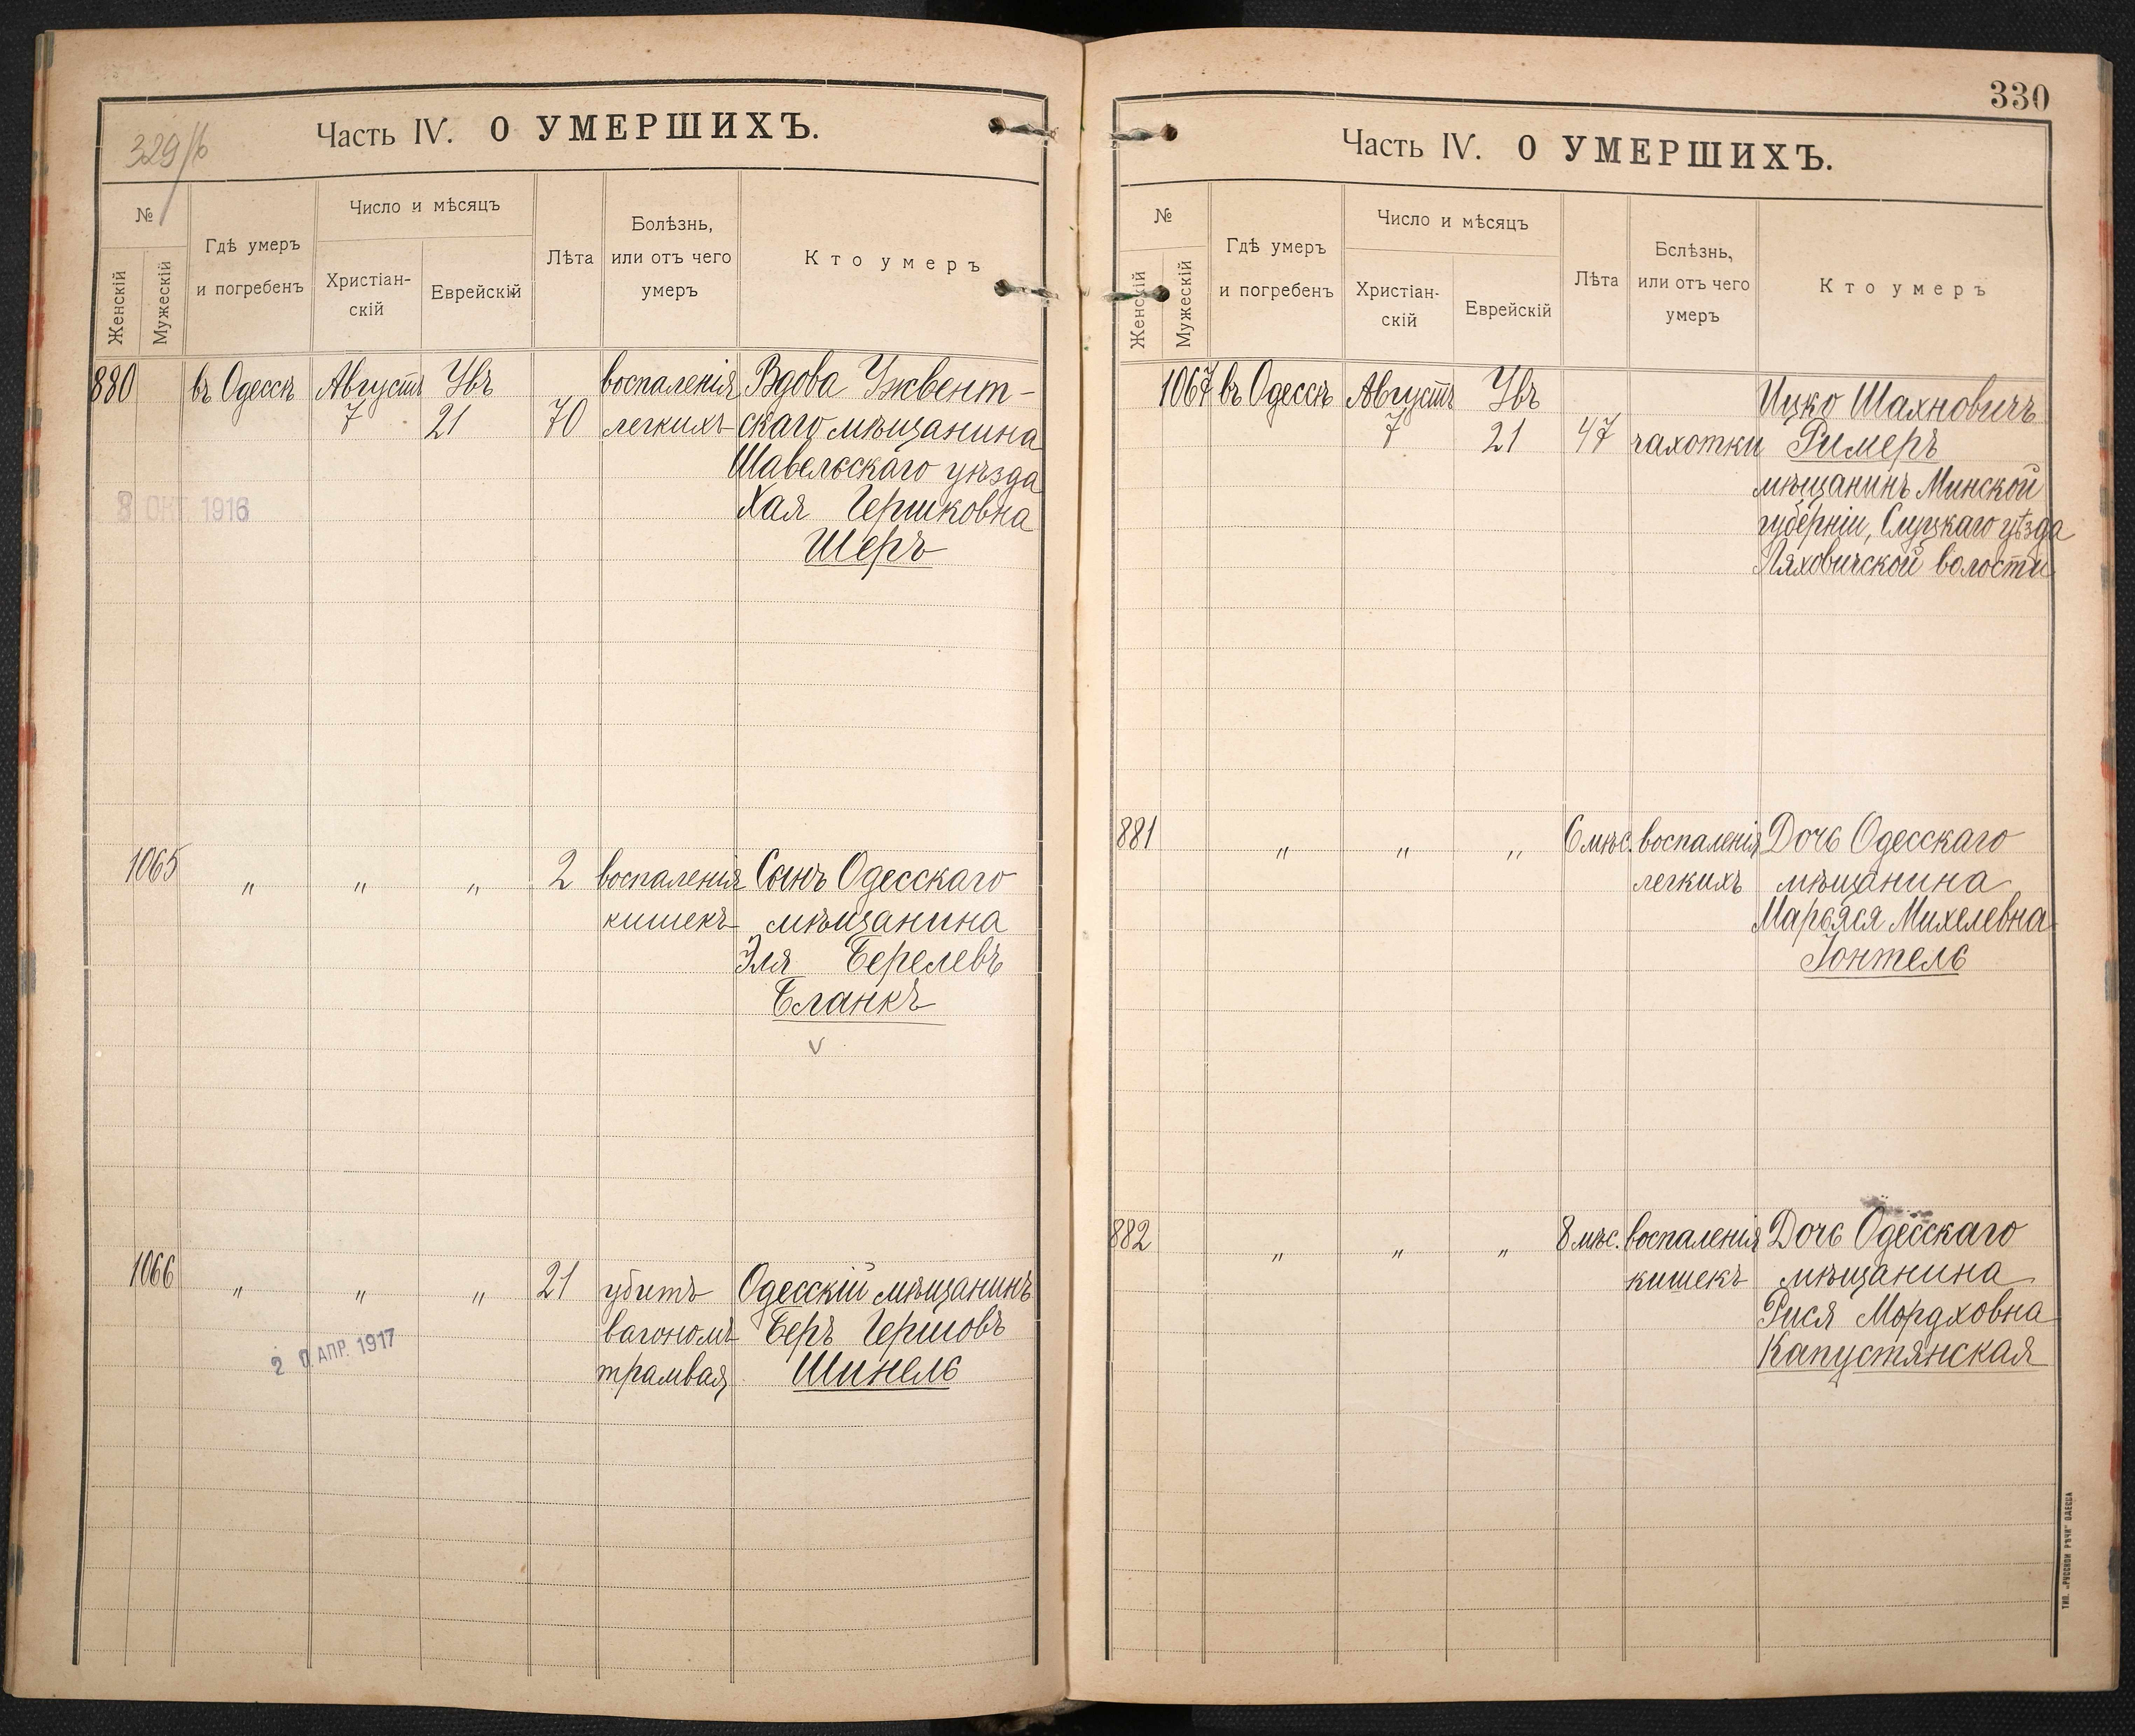 329/б
Часть IV. О УМЕРШИХЪ.
№
Женскій
Мужескій
Гдѣ умеръ
и погребенъ
Число и мѣсяцъ
Христіан-
скій
Еврейскій
Лѣта
Болѣзнь,
или отъ чего
умеръ
Кто умеръ
880 въ Одессѣ Августъ Увъ воспаленія Вдова Ужвент-
7 21 70 легкихъ скаго мѣщанина
Шавельскаго уѣзда
Хая Гершковна
Шеръ
8 ОКТ 1916
1065 " " " 2 воспаленія Сынъ Одесскаго
кишекъ мѣщанина
Эля Берелевъ
Бланкъ
1066 " " " 21 убитъ Одесскій мѣщанинъ
вагономъ Беръ Гершовъ
трамвая Шинель
20 АПР. 1917
330
Часть IV. О УМЕРШИХЪ.
№
Женскій
Мужескій
Гдѣ умеръ
и погребенъ
Число и мѣсяцъ
Христіан-
скій
Еврейскій
Лѣта
Бслѣзнь,
или отъ чего
умеръ
Кто умеръ
1067 въ Одессѣ Августъ Увъ Ицко Шахновичъ
7 21 47 чахотки Римеръ
мѣщанинъ Минской
губерніи, Слуцкаго уѣзда
Ляховичской волости
881 " " " 6 мѣс. воспаленія Дочь Одесскаго
легкихъ мѣщанина
Марьяся Михелевна
Іонтель
882 " " " 8 мѣс. воспаленія Дочь Одесскаго
кишекъ мѣщанина
Рися Мордховна
Капустянская
ТИП. „РУССКОЙ РѢЧИ" ОДЕССА